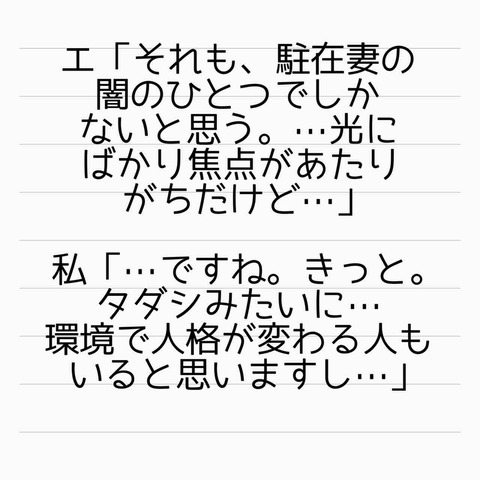 エ「それも、駐在妻の
闇のひとつでしか
ないと思う。…光に
ばかり焦点があたり
がちだけど…」
私「…ですね。きっと。
タダシみたいに…
環境で人格が変わる人も
いると思いますし…」